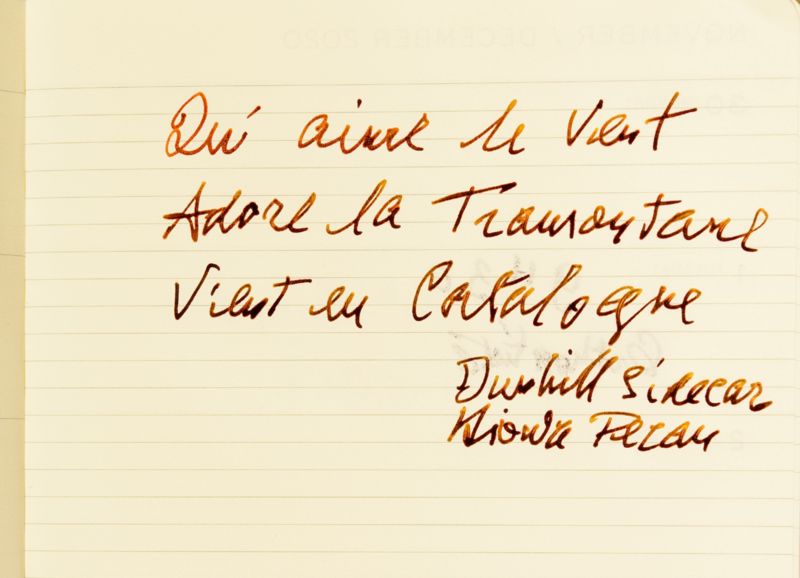 Qui aime le Vent
Adore la Tramontane
Vient en Catalogne
Dunhill Sidecar
Kiowa Pecan